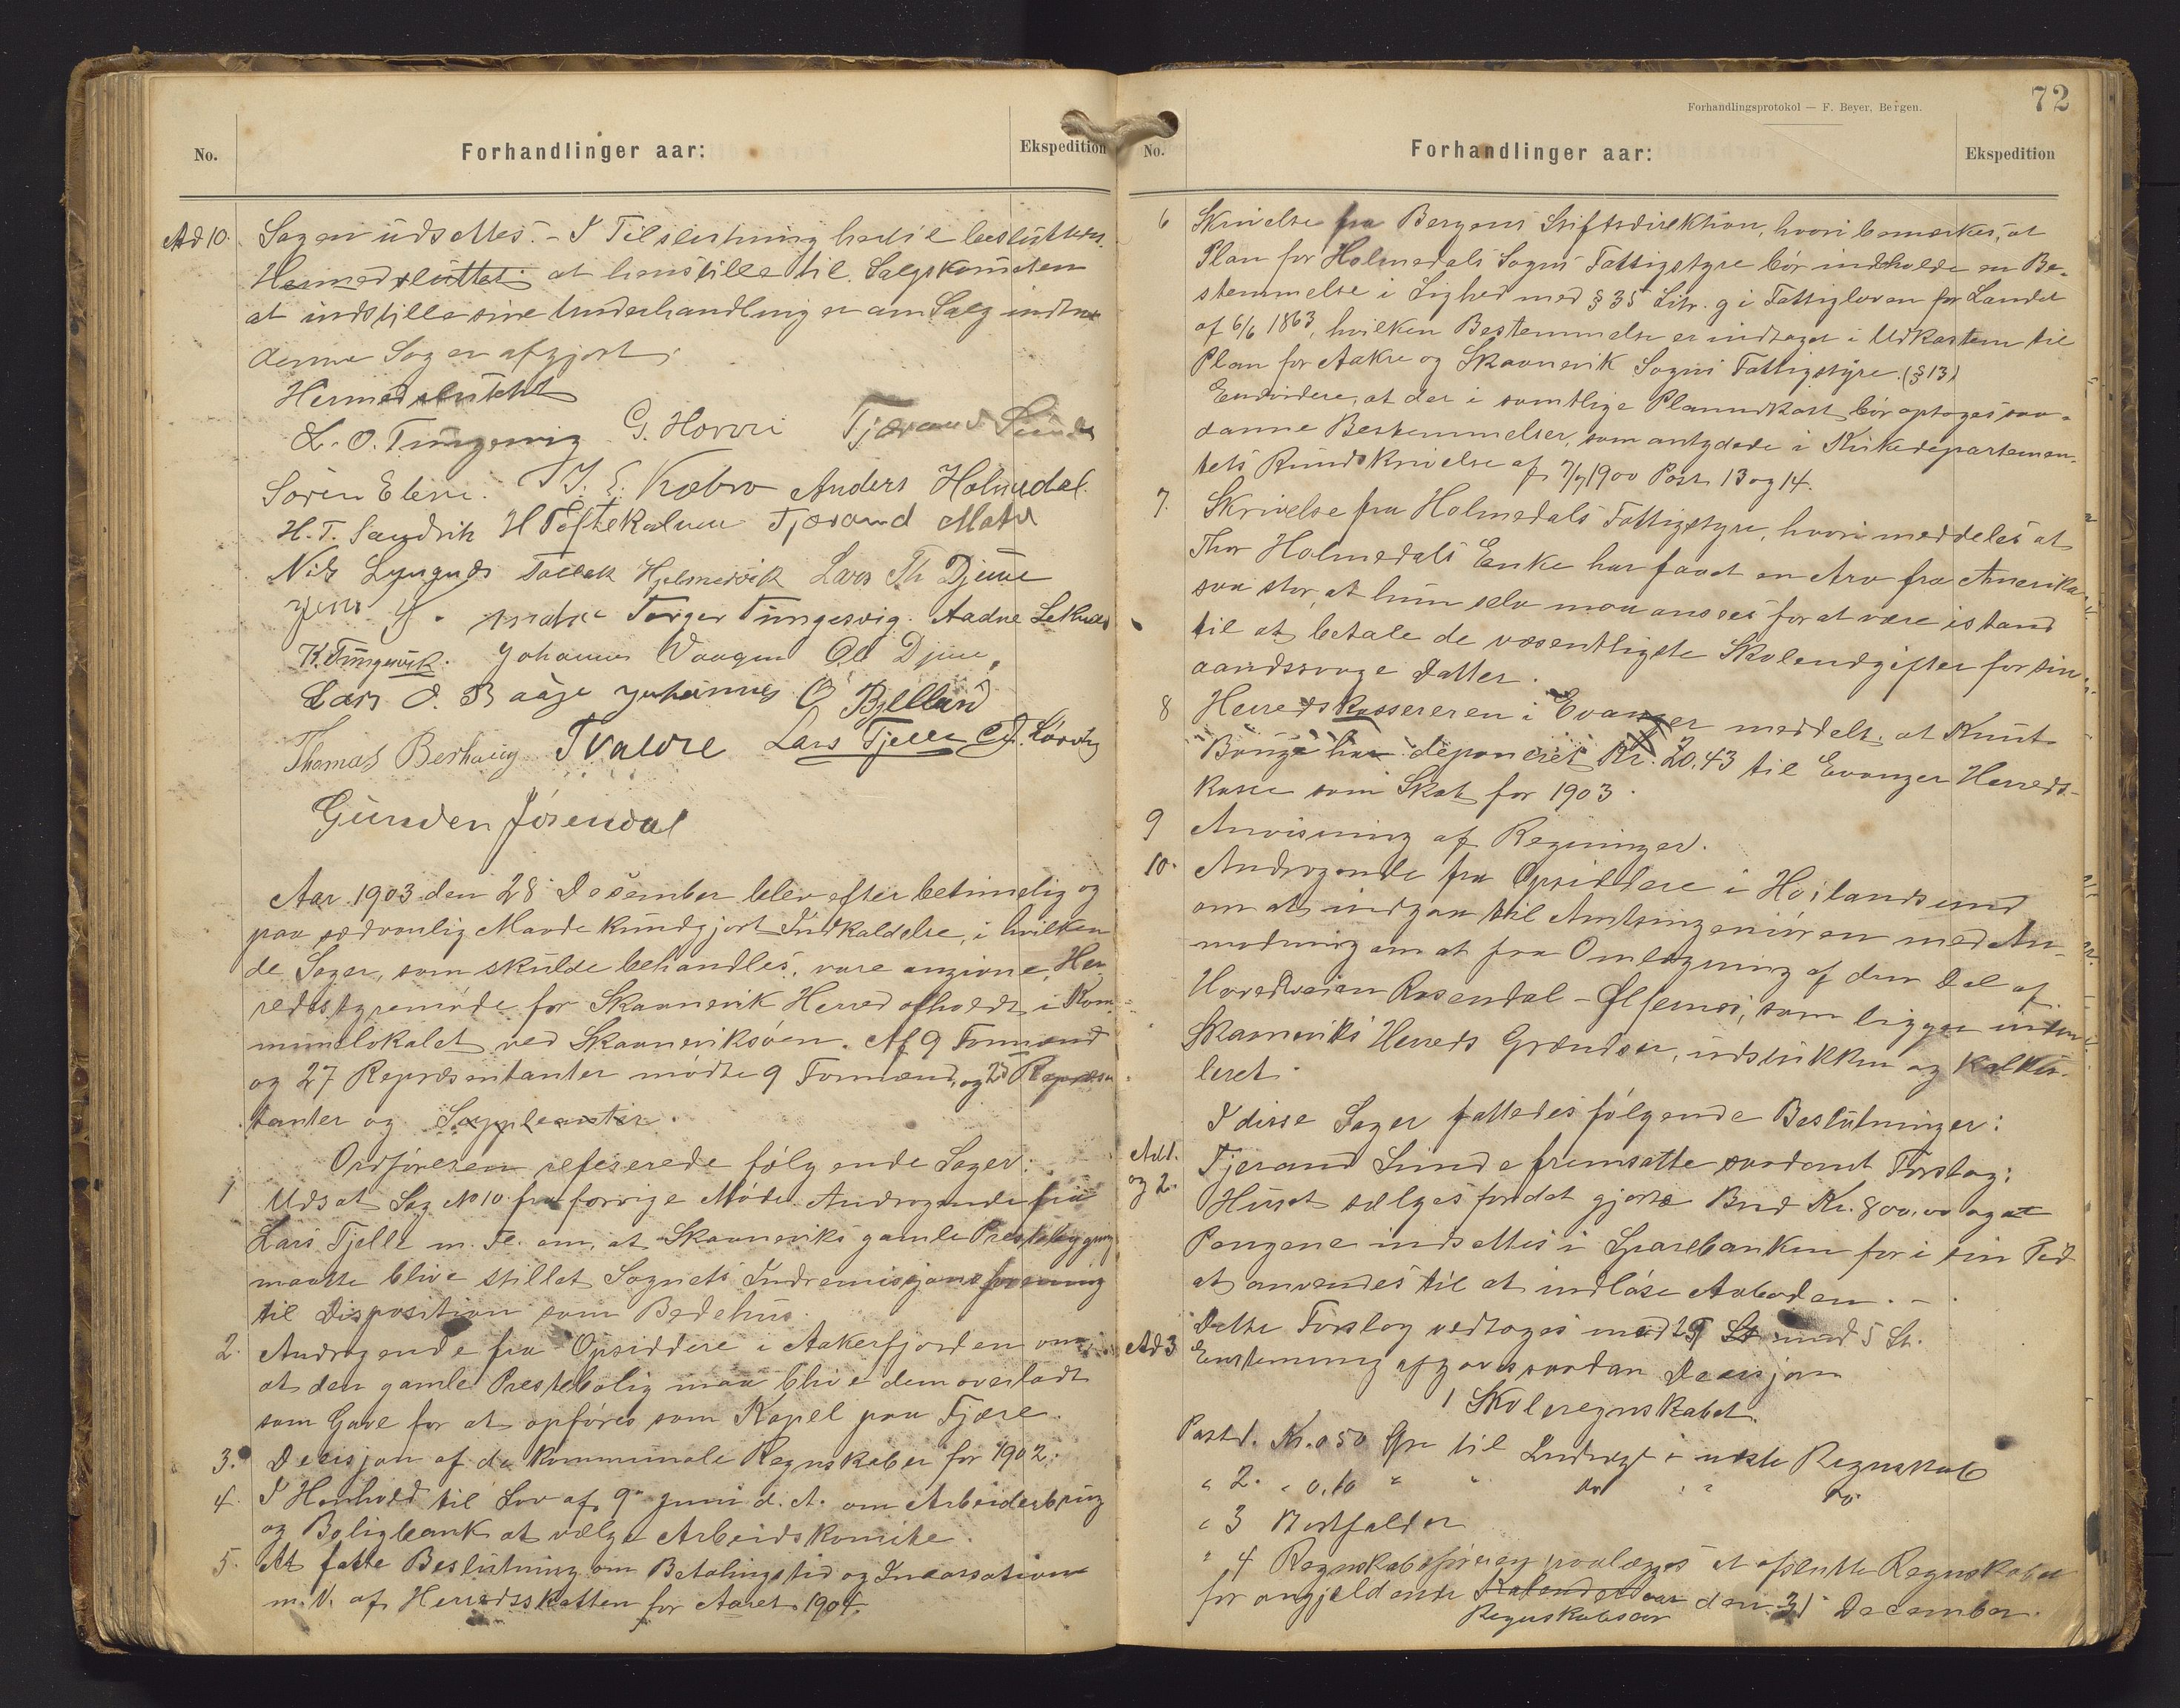 No.
Forhandlinger aar:
Ekspedition
Ad 10. Sagen udsættes. - I Tilslutning hertil besluttedes
Hermed sluttet at henstille til Salgskomiteen
at indstille sine Underhandlinger om Salg indtil
denne Sag er afgjort.
Hermed sluttet
L. O. Tungesvig G. Horvei Tjærand Sunde
Søren Etene. J. E. Kæbro Anders Holmedal.
H. T. Sandvik H Tøftekalven Tjærand Matre
Nils Lyngnæs Tollak Hjelmevik Lars Th Djuve
Jens Torger Tungesvig. Aadne Leknes
K. Tungesvik. Johannes Vaagen Ole Djuve,
Lars O. Baage Johannes O Bjelland
Thomas Berhaug T Valvre Lars Tjelle
Gunder Jøsendal
Aar 1903 den 28 December blev efter betimelig og
paa sædvanlig Maade kundgjort Indkaldelse, i hvilken
de Sager, som skulde behandles, vare angivne, Her-
redsstyremøde for Skaanevik Herred afholdt i Kom-
munelokalet ved Skaaneviksøen. Af 9 Formænd
og 27 Repræsentanter mødte 9 Formænd og 25 Repræsen
tanter og Suppleanter.
Ordføreren refererede følgende Sager:
1 Udsat Sag No 10 fra forrige Møde Andragende fra
Lars Tjelle m. Fl. om, at Skaaneviks gamle Prestebygning
maatte blive stillet Sognets Indremisjonsforening
til Disposition som Bedehus.
2. Andragende fra Opsiddere i Aakerfjorden om
at den gamle Prestebolig maa blive dem overladt
som Gave for at opføres som Kapel paa Fjære.
3. Decisjon af de kommunale Regnskaber for 1902.
4. I Henhold til Lov af 9de Juni d. A. om Arbeiderbrug
og Boligbank at vælge Arbeidskomite.
5. At fatte Beslutning om Betalingstid og Incassation
m. V. af Herredsskatten for Aaret 1904.
Forhandlingsprotokol — F. Beyer, Bergen.
72
No.
Forhandlinger aar:
Ekspedition
6 Skrivelse fra Bergens Stiftsdirektion, hvori bemærkes, at
Plan for Holmedals Sogns Fattigstyre bør indholde en Be-
stemmelse i Lighed med § 35 Litr. g i Fattigloven for Landet
af 6/6 1863, hvilken Bestemmelse er indtaget i Udkastene til
Plan for Aakre og Skaanevik Sogns Fattigstyre. (§ 13)
Endvidere, at der i samtlige Planudkast bør optages saa-
danne Bestemmelser, som antydede i Kirkedepartemen-
tets Rundskrivelse af 7/7 1900 Post 13 og 14.
7. Skrivelse fra Holmedals Fattigstyre, hvori meddeles at
Thor Holmedals Enke har faaet en Arv fra Amerika
saa stor, at hun selv maa ansees for at være istand
til at betale de væsentligste Skoleudgifter for sin
aandssvage Datter.
8 Herredskassereren i Evanger meddelt, at Knut
Bauge har deponeret Kr. 20,43 til Evanger Herreds-
kasse som Skat for 1903.
9 Anvisning af Regninger.
10. Andragende fra Opsiddere i Høilandsund
om at indgaa til Amtsingeniøren med An-
modning om at faa Omlægning af den Del af
Hovedveien Rosendal - Ølfernes, som ligger inden
Skaaneviks Herreds Grændser, udstukken og kalku-
leret.
I disse Sager fattedes følgende Beslutninger:
Ad 1. og 2. Tjerand Sunde fremsatte saadant Forslag:
Huset sælges for det gjorte Bud Kr. 800,00 og at
Pengene indsættes i Sparebanken for i sin Tid
at anvendes til at indløse Aaboden. -
Dette Forslag vedtoges med 29 St. mod 5 St.
Ad 3 Enstemmig afgaves saadan Decisjon
1 Skoleregnskabet.
Post 1. Kr. 0 50 Øre til Indtægt i næste Regnskab
" 2. " 0,10 " " do " " do.
" 3 Bortfalder
" 4 Regnskabsføreren paalægges at afslutte Regnskabet
for angjældende Kalenderaar den 31 December.
Regnskabsaar